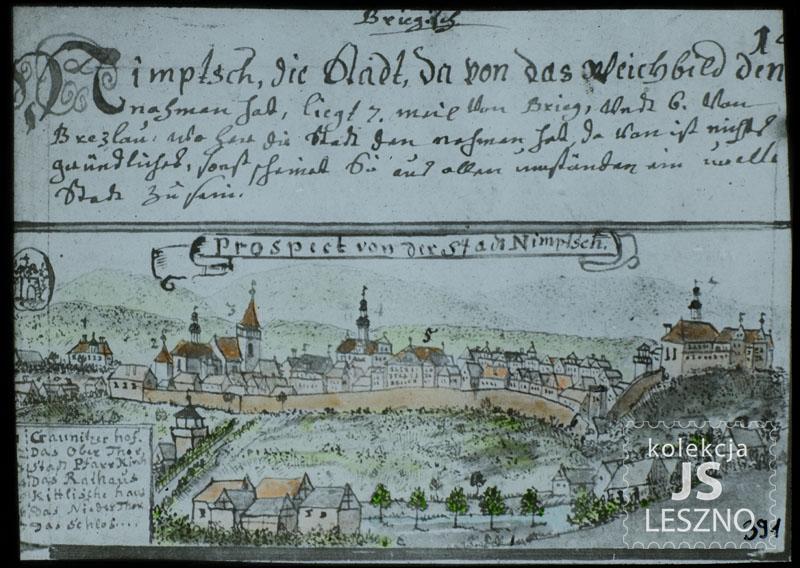 Briegisch
14
Nimptsch, die Stadt, da von das Weichbild den
nahmen hat, liegt 7. meil von Brieg, undt 6. von
Breslau, wo her die Stadt den nahmen hat, da von ist nichts
gründliches, sonst scheinet Sie aus allen umständen ein uralte
Stadt zu sein.
Prospect von der Stadt Nimptsch.
2
3
4
5
Craunitzer hof.
Das Ober Thor,
Stadt Pfarr Kirch
Das Rathaus
das Nieder Thor
das Schlos....
kolekcja
JS
LESZNO
391